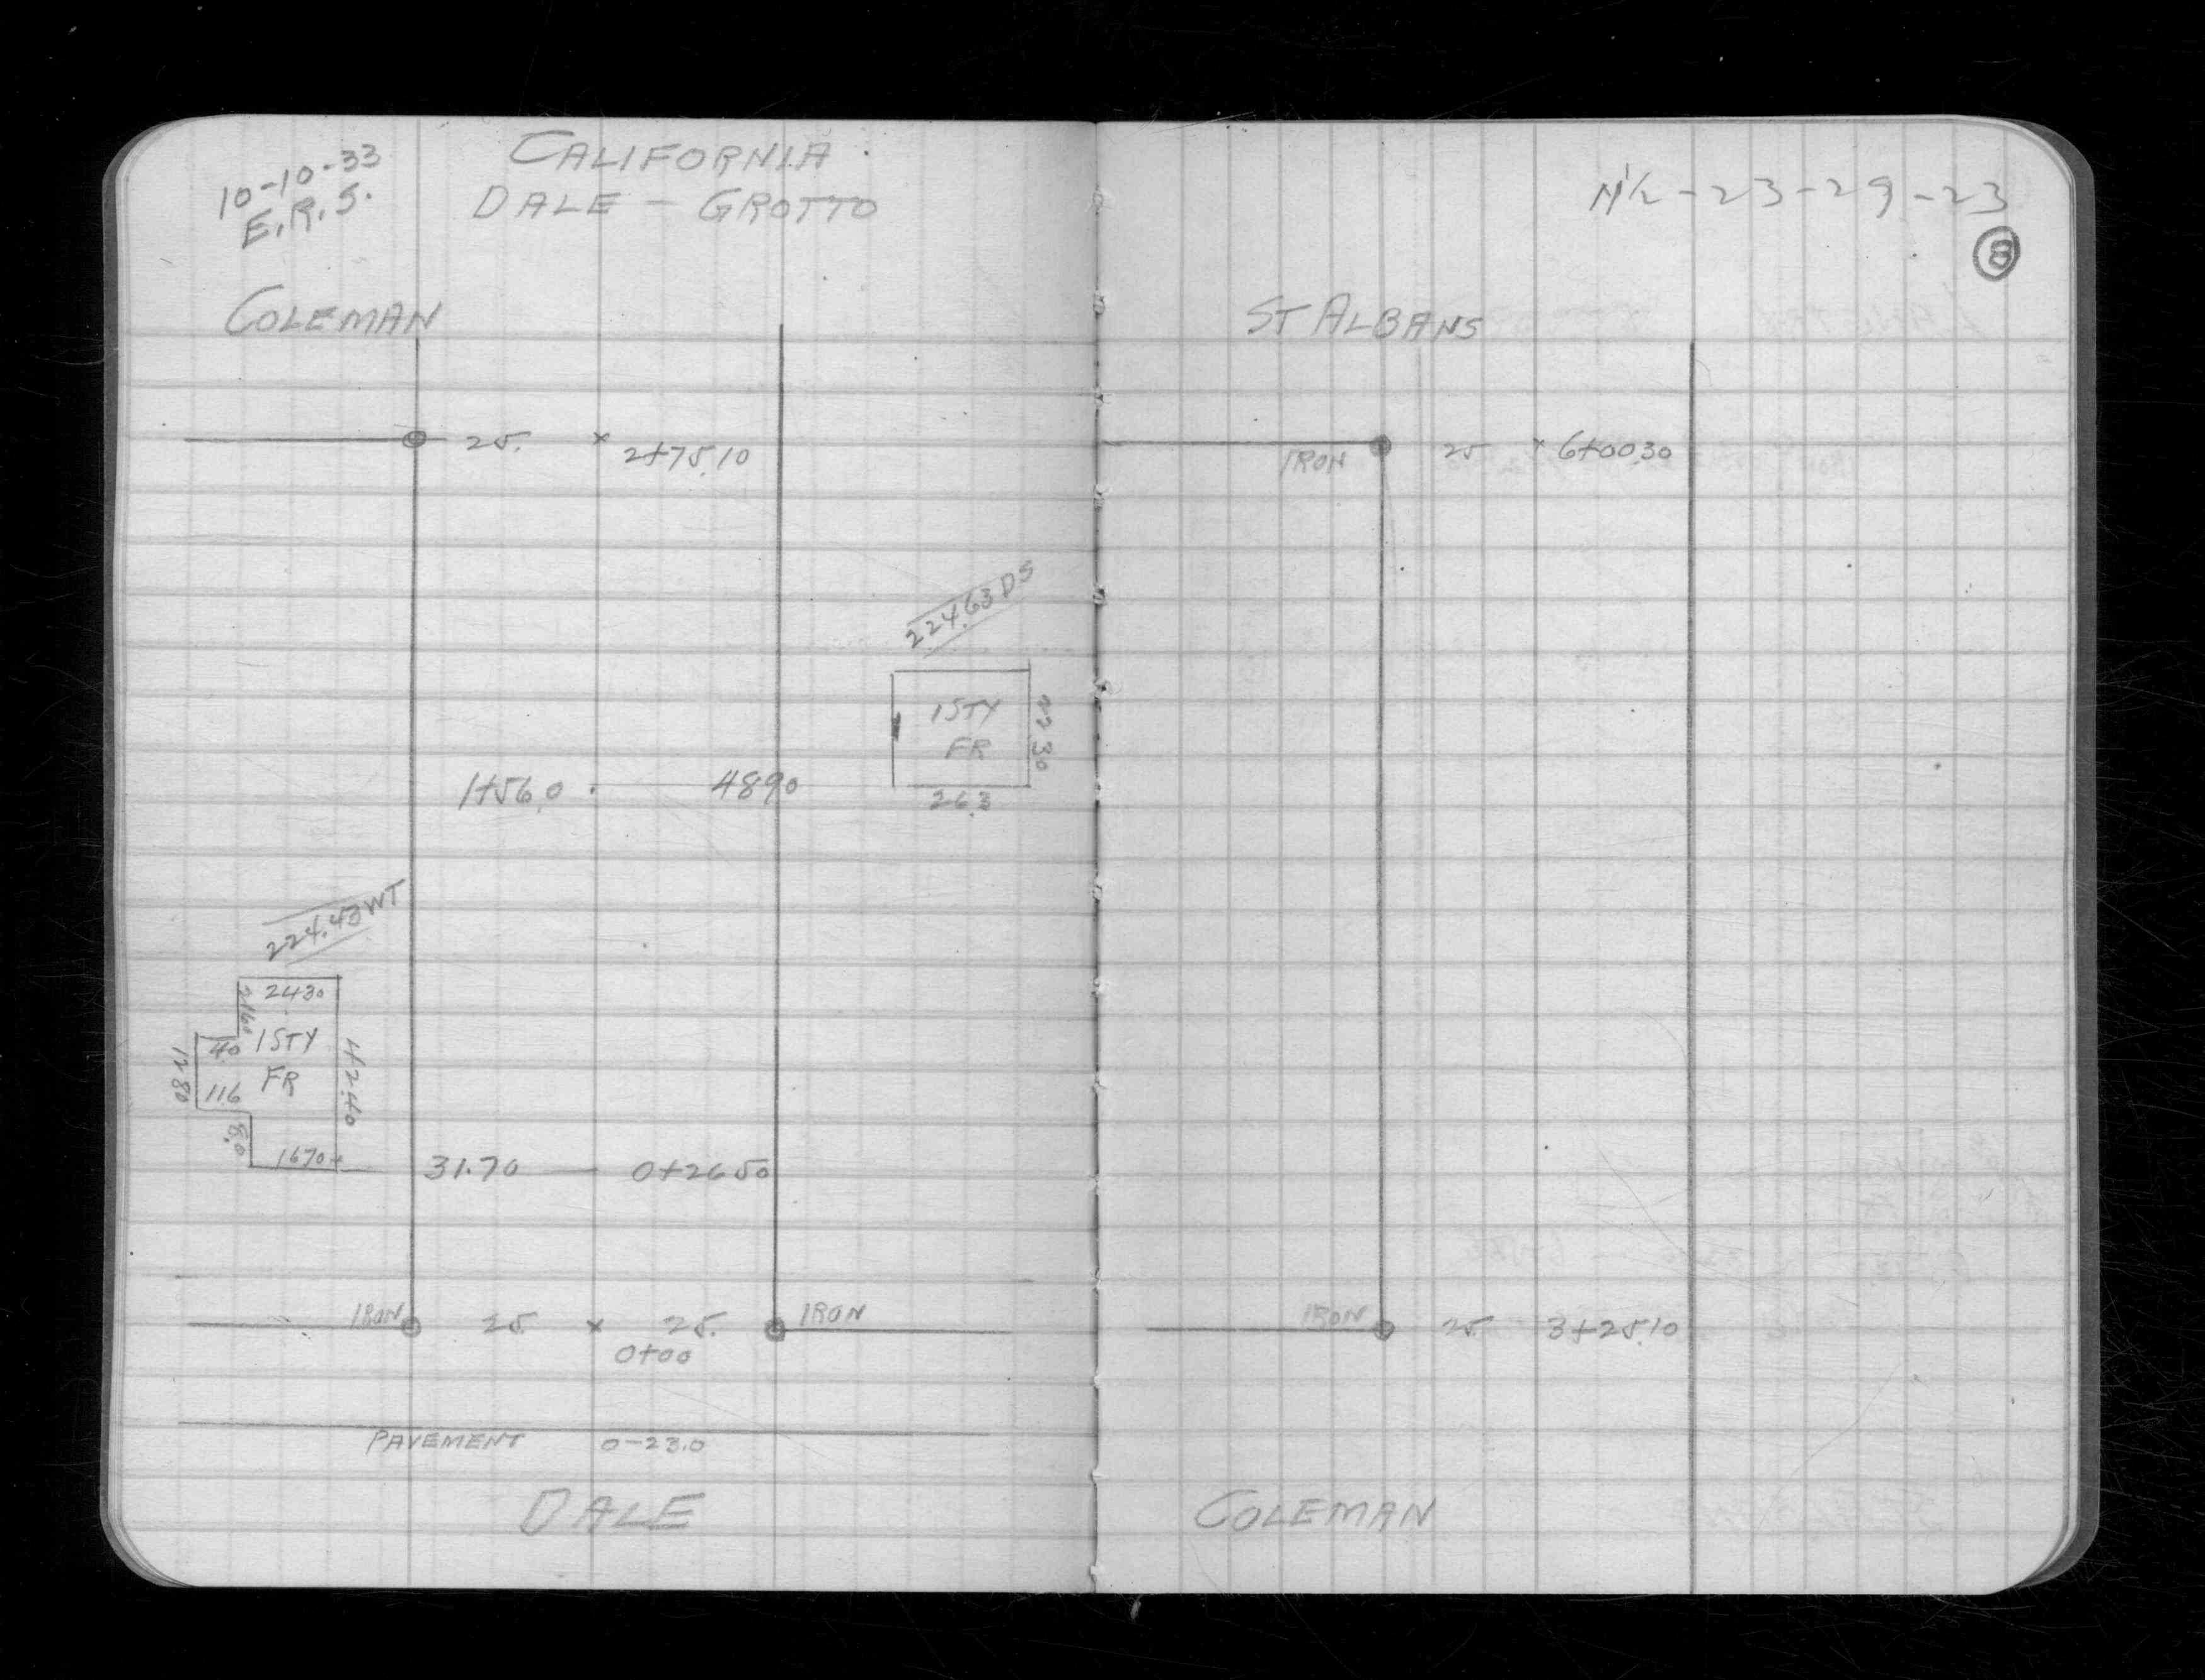 10-10-33
E.R.S.
CALIFORNIA
DALE - GROTTO
COLEMAN
25. × 2+75.10
224.63 DS
1 STY
FR
22 30
26.3
1+56.0 . 48 90
224.43 WT
24 30
21 60
1 STY
FR
4.0
12 80
11 6
42 40
8.0
16 70
31.70 — 0+26 50
IRON 25. × 25. IRON
0+00
PAVEMENT 0-23.0
DALE
N½-23-29-23
8
ST ALBANS
IRON 25 × 6+00 30
IRON 25. 3+25.10
COLEMAN